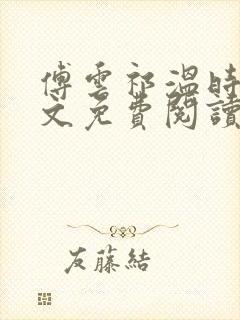 傅雲祁溫時
文免費閱讀
友藤結